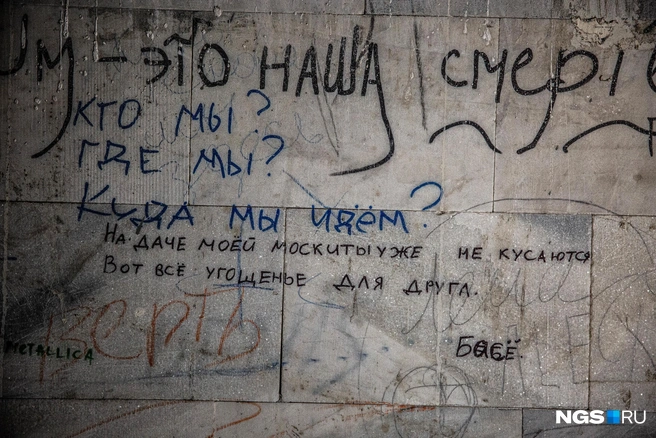 — это наша смерть
кто мы?
где мы?
Куда мы идём?
На даче моей москиты уже не кусаются
Вот всё угощенье для друга.
Басё.
METALLICA
NGS RU